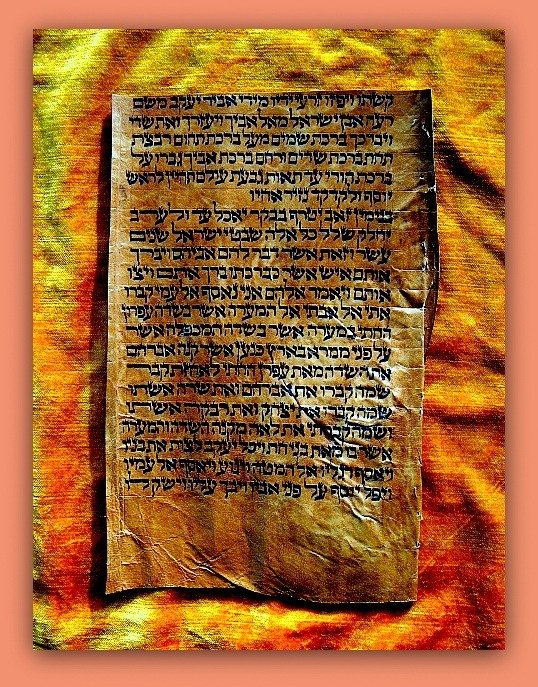 קשתו ויפזו זרעי ידיו מידי אביר יעקב משם
רעה אבן ישראל מאל אביך ויעזרך ואת שדי
ויברכך ברכת שמים מעל ברכת תהום רבצת
תחת ברכת שדים ורחם ברכת אביך גברו על
ברכת הורי עד תאות גבעת עולם תהיין לראש
יוסף ולקדקד נזיר אחיו
בנימין זאב יטרף בבקר יאכל עד ולערב
יחלק שלל כל אלה שבטי ישראל שנים
עשר וזאת אשר דבר להם אביהם ויברך
אותם איש אשר כברכתו ברך אתם ויצו
אותם ויאמר אלהם אני נאסף אל עמי קברו
אתי אל אבתי אל המערה אשר בשדה עפרון
החתי במערה אשר בשדה המכפלה אשר
על פני ממרא בארץ כנען אשר קנה אברהם
את השדה מאת עפרן החתי לאחזת קבר
שמה קברו את אברהם ואת שרה אשתו
שמה קברו את יצחק ואת רבקה אשתו
ושמה קברתי את לאה מקנה השדה והמערה
אשר בו מאת בני חת ויכל יעקב לצות את בניו
ויאסף רגליו אל המטה ויגוע ויאסף אל עמיו
ויפל יוסף על פני אביו ויבך עליו וישק לו